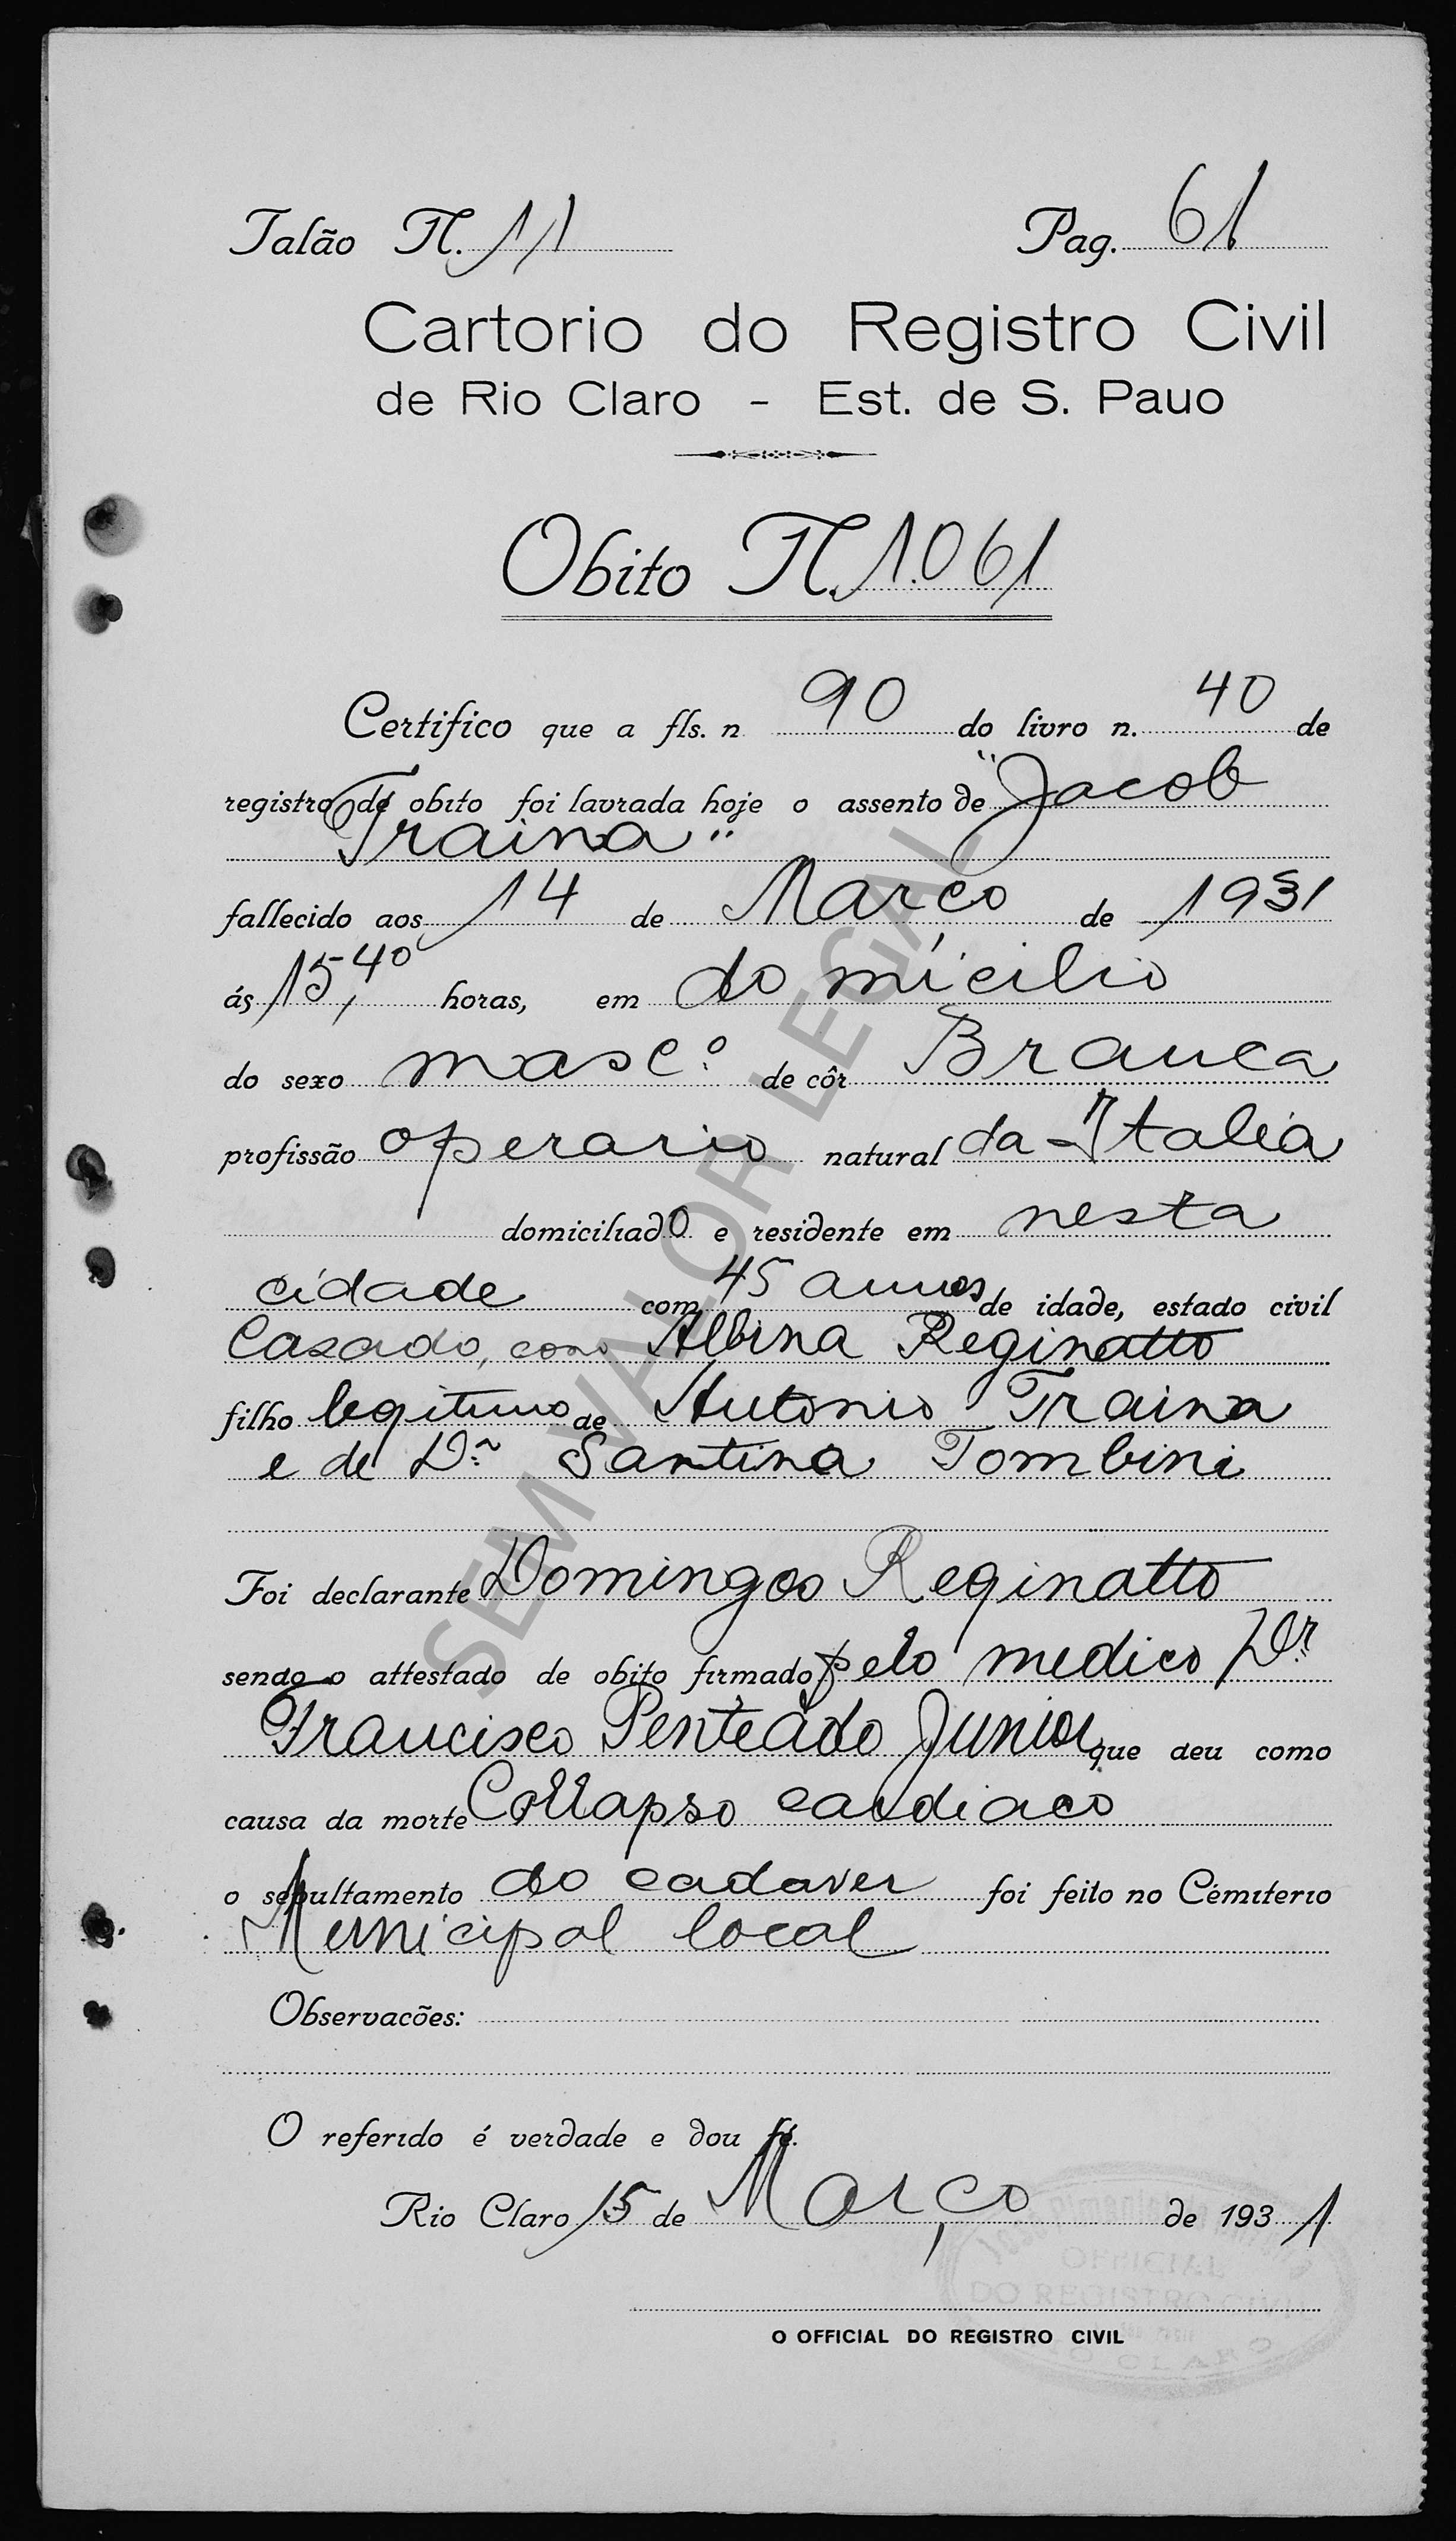 Talão N. 11 Pag. 61
Cartorio do Registro Civil
de Rio Claro - Est. de S. Pauo
Obito N. 1.061
Certifico que a fls. n 90 do livro n. 40 de
registro de obito foi lavrada hoje o assento de "Jacob
Traina"
fallecido aos 14 de Março de 1931
ás 15,40 horas, em do micilio
do sexo masc.º de côr Branca
profissão operario natural da Italia
domiciliado e residente em nesta
cidade com 45 annos de idade, estado civil
Casado, com Albina Reginatto
filho legitimo de Antonio Traina
e de D.ª Santina Tombini
Foi declarante Domingos Reginatto
sendo o attestado de obito firmado pelo medico Dr.
Francisco Penteado Junior que deu como
causa da morte Collapso cardiaco
o sepultamento do cadaver foi feito no Cémiterio
Municipal local
Observacões:
O referido é verdade e dou fé.
Rio Claro 15 de Março de 1931
OFFICIAL
DO REGISTRO CIVIL
RIO CLARO
O OFFICIAL DO REGISTRO CIVIL
SEM VALOR LEGAL